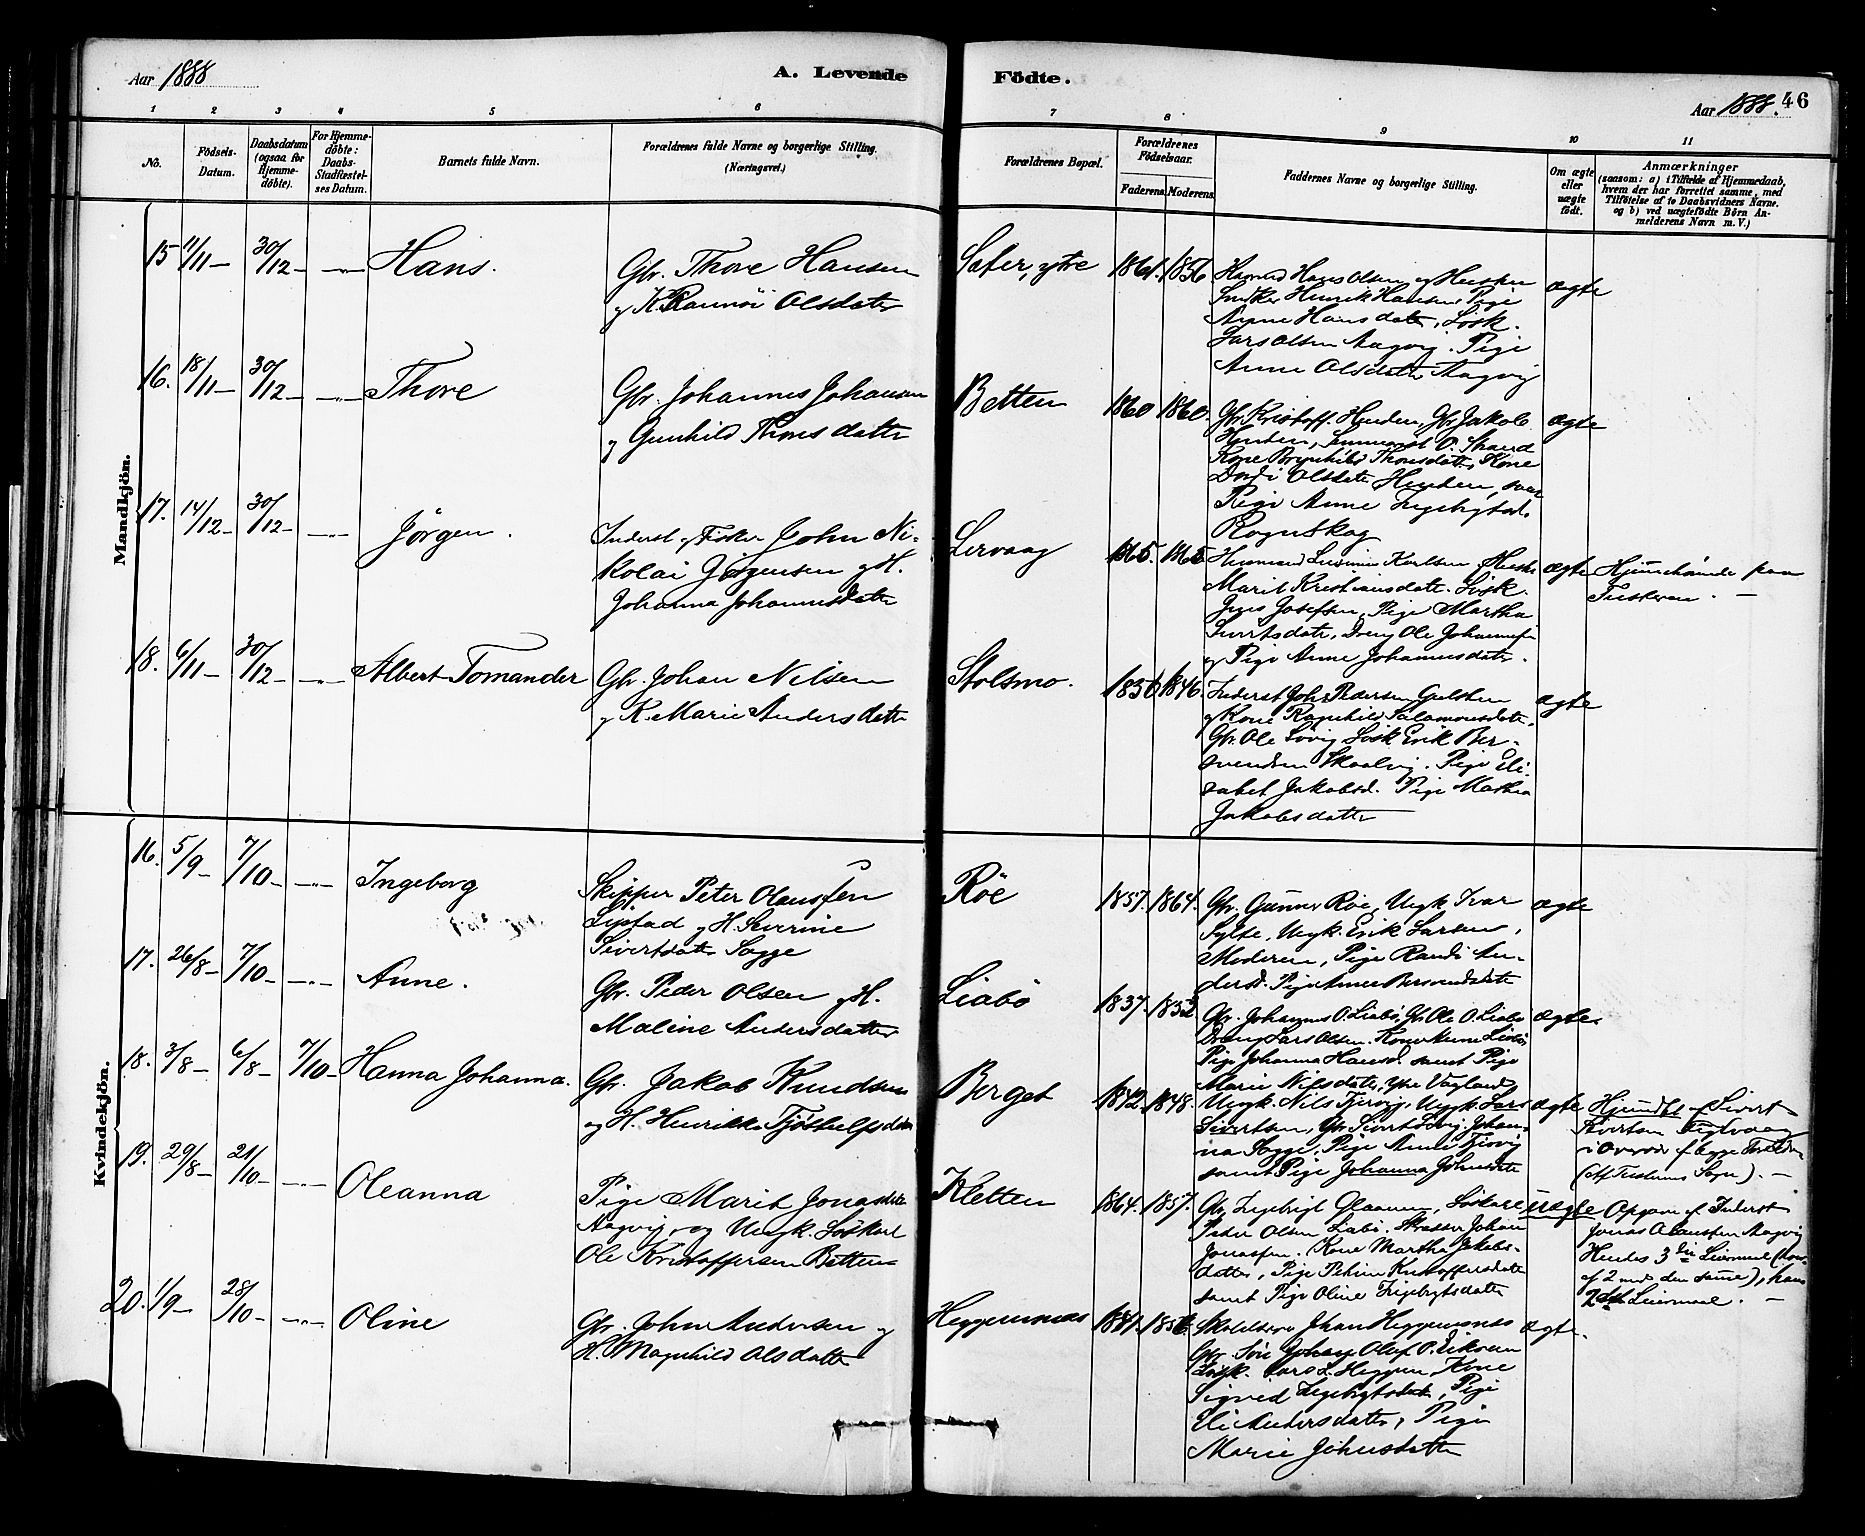 Aar 1888
A. Levende Födte.
Aar 1888. 46
1 2 3 4 5 6 7 8 9 10 11
No.
Födsels-Datum.
Daabsdatum (ogsaa for Hjemmedöbte).
For Hjemmedöbte: Daabs-Stadfæstelses Datum.
Barnets fulde Navn.
Forældrenes fulde Navne og borgerlige Stilling. (Næringsvei.)
Forældrenes Bopæl.
Forældrenes Födselsaar.
Faderens. Moderens.
Faddernes Navne og borgerlige Stilling.
Om ægte eller uægte födt.
Anmærkninger
(saasom: a) i Tilfælde af Hjemmedaab,
hvem der har forrettet samme, med
Tilföielse af to Daabsvidners Navne.
og b) ved uægtefödte Börn An-
melderens Navn m. V.)
Mandkjön.
15 11/11 30/12 Hans.
Gbr. Thore Hansen
og K. Rannöi Olsdatter
Sater, ytre 1861. 1856.
Hans Olsen
Henrik Hansen, Pige
Anne Hansdatter, Løsk.
Lars Olsen Aagvig. Pige
Anne Olsdatter Aagvig
ægte
16. 18/11 30/12 Thore
Gbr. Johannes Johansen
og Gunhild Thoresdatter
Betten 1860 1860.
Gbr. Kristoff. Henden, Gbr. Jakob
Henden, O. Strand
Kone Brynhild Thoresdatter, Kone
Olsdatter Henden, samt
Pige Anne Ingebrigtsd.
Rognskog
ægte
17. 14/12 30/12 Jørgen.
Inderst og Fisker John Ni-
kolai Jørgensen og H.
Johanna Johannesdatter
Lervaag 1865. 1865
Karlsen
Marit Kristiansdatter. Løsk.
Josefsen, Pige Martha
Sivertsdatter, Dreng Ole Johannes
og Pige Anne Johannesdatter.
ægte
Hjemmehørende paa
Tusteren. —
18. 6/11 30/12 Albert Tomander
Gbr. Johan Nilsen
og K. Marie Andersdatter
Stolsmo. 1836 1846.
Inderst John Pedersen
og Kone Ragnhild Salamonsdatter,
Gbr. Ole Løvig Løsk. Erik Ber-
svendsen Skaalvig. Pige Eli-
sabet Jakobsd. Pige Martha
Jakobsdatter
ægte
Kvindekjön.
16. 5/9 7/10 Ingeborg
Skipper Peter Olaussen
Lipstad og H. Severine
Sivertsdatter Sagge
Röe 1857. 1864.
Gbr. Gunner Röe, Ungk. Ivar
Sylte, Ungk. Erik Larsen,
Moderen, Pige Randi An-
dersd. Pige Anne Bersvendsdatter
ægte
17. 26/8 7/10 Anne.
Gbr. Peder Olsen og H.
Maline Andersdatter
Liabö 1837. 1852
Gbr. Johannes O. Liabö, Gbr. Ole O. Liabö
Dreng Lars Olsen. Kone Anne Liabö
Pige Johanna Hansd. samt Pige
Marie Nilsdatter, ytre Vagland
ægte.
18. 3/8 6/8 7/10 Hanna Johanna.
Gbr. Jakob Knudsen
og H. Henrikke Tjøstelfsdatter
Berget 1842. 1848.
Ungk. Nils Tjervig, Ungk. Lars
Sivertsen, Gbr. Sivert Løvig, Johan-
na Sagge, Pige Anne Tjervig
samt Pige Johanna Johnsdatter
ægte
Hjemdbt. af Sivert
Sivertsen
(af Tusterens Sogn). —
19. 29/8 21/10 Oleanna
Pige Marit Jonasdatter
Aagvig, og Ungk. Løskarl
Ole Kristoffersen Betten
Kletten 1864. 1857.
Gbr. Ingebrigt Olaussen, Løskarl
Peder Olsen Liabö, Skrædder Johan
Jonassen. Kone Martha Jakobs-
datter, Pige Petrine Kristoffersdatter
samt Pige Oline Ingebrigtsdatter
uægte
Opgave af Inderst
Jonas Olaussen Aagvig
Hendes 3die Leiermaal (hvor-
af 2 med den samme), hans
2det Leiermaal. —
20. 1/9 28/10 Oline
Gbr. John Andersen og
H. Magnhild Olsdatter
Heggemsnes 1841. 1856.
Johan Heggemsnes
Gbr. Johan Olaf O. Eikrem
Løsk. Lars L. Heggem, Kone
Sigrid Ingebrigtsdatter, Pige
Eli Andersdatter, Pige
Marie Johnsdatter
ægte.